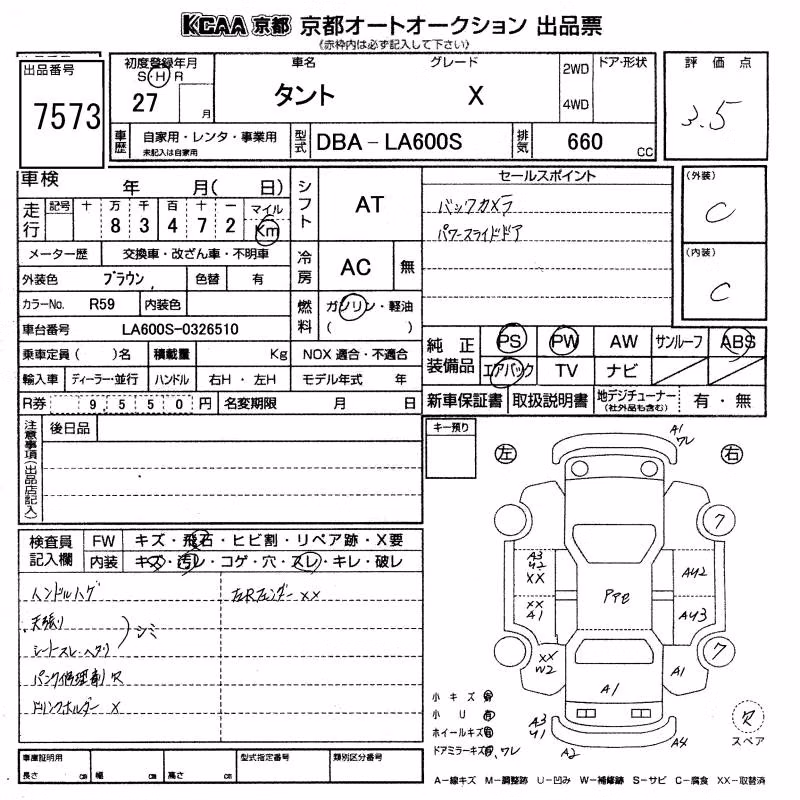 KCAA 京都 京都オートオークション 出品票
《赤枠内は必ず記入して下さい》
出品番号
7573
初度登録年月
S・H R
27 月
車名
タント
グレード
X
2WD
4WD
ドア・形状
評価点
3.5
車歴
自家用・レンタ・事業用
未記入は自家用
型式
DBA-LA600S
排気
660 CC
車検 年 月( 日)
シフト
AT
セールスポイント
バックカメラ
パワースライドドア
(外装)
C
(内装)
C
走行
記号 十 万 千 百 十 一 マイル
8 3 4 7 2 Km
メーター歴 交換車・改ざん車・不明車
冷房
AC 無
外装色 ブラウン 色替 有
カラーNo. R59 内装色
燃料
ガソリン・軽油
( )
車台番号 LA600S-0326510
乗車定員( )名 積載量 Kg NOX 適合・不適合
輸入車 ディーラー・並行 ハンドル 右H・左H モデル年式 年
R券 9,550円 名変期限 月 日
純正装備品
PS PW AW サンルーフ ABS
エアバック TV ナビ
新車保証書 取扱説明書 地デジチューナー (社外品も含む) 有・無
注意事項(出品店記入)
後日品
キー預り
左
右
検査員記入欄
FW キズ・飛石・ヒビ割・リペア跡・X要
内装 キズ・汚レ・コゲ・穴・スレ・キレ・破レ
ハンドルハゲ
天張り
シートスレ・ヘタリ
シミ
パンク修理剤欠
ドリンクホルダー X
左Rフェンダー XX
A1
ワレ
7
A3
U2
XX
AU2
XX
A1
PPE
AU3
XX
W2
A1
7
A1
A3
U1
A2
A4
欠
スペア
小キズ有
小U有
ホイールキズ有
ドアミラーキズ有、ワレ
車庫証明用
長さ cm 幅 cm 高さ cm
型式指定番号
類別区分番号
A-線キズ M-調整跡 U-凹み W-補修跡 S-サビ C-腐食 XX-取替済